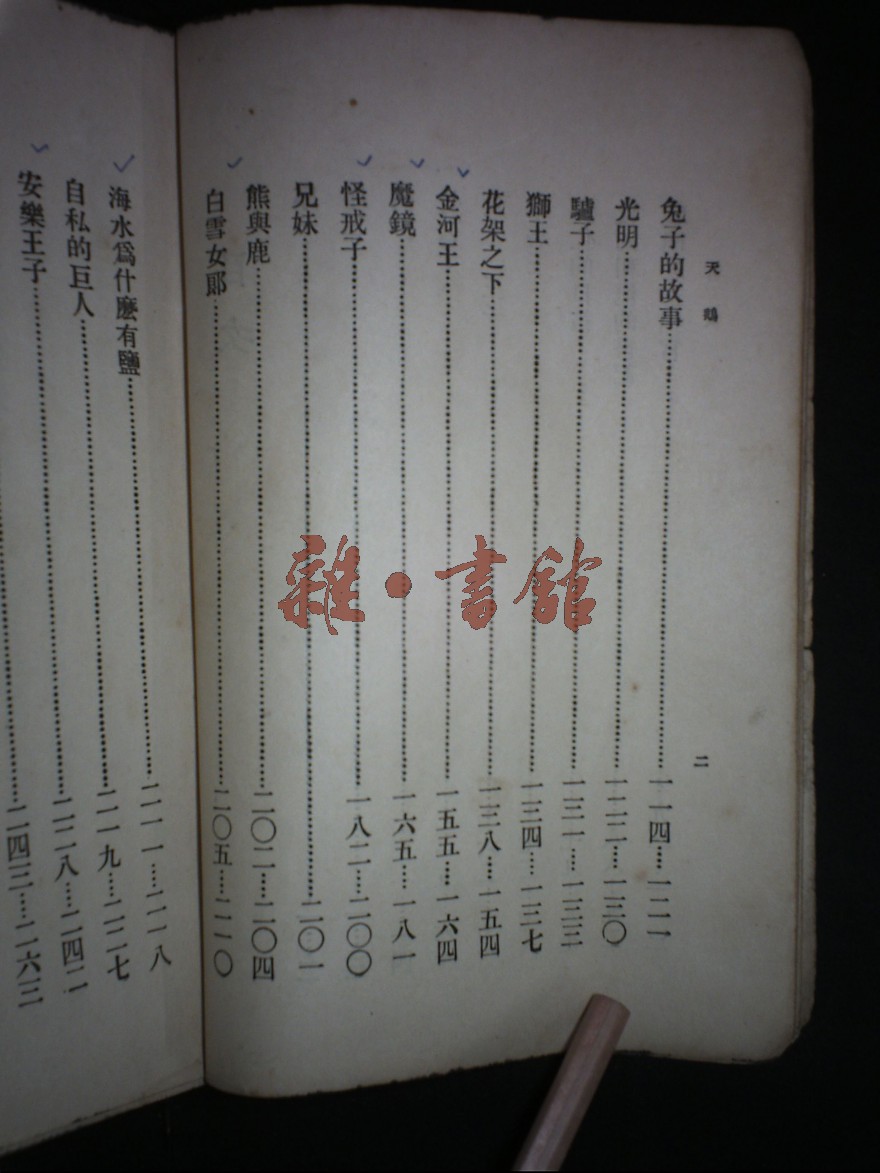 天鵝
二
兔子的故事……一一四…一二一
光明……一二二…一三〇
驢子……一三一…一三三
獅王……一三四…一三七
花架之下……一三八…一五四
金河王……一五五…一六四
魔鏡……一六五…一八一
怪戒子……一八二…二〇〇
兄妹……二〇一
熊與鹿……二〇二…二〇四
白雪女郎……二〇五…二一〇
海水爲什麽有鹽……二一一…二一八
自私的巨人……二一九…二二七
安樂王子……二二八…二四二
二四三…二六三
雜·書館